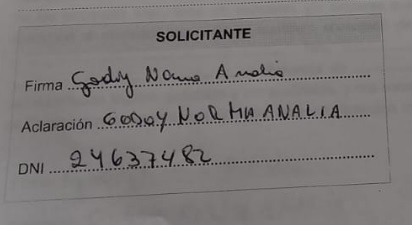 SOLICITANTE
Firma Godoy Norma Analia
Aclaración GODOY NORMA ANALIA
DNI 24637482